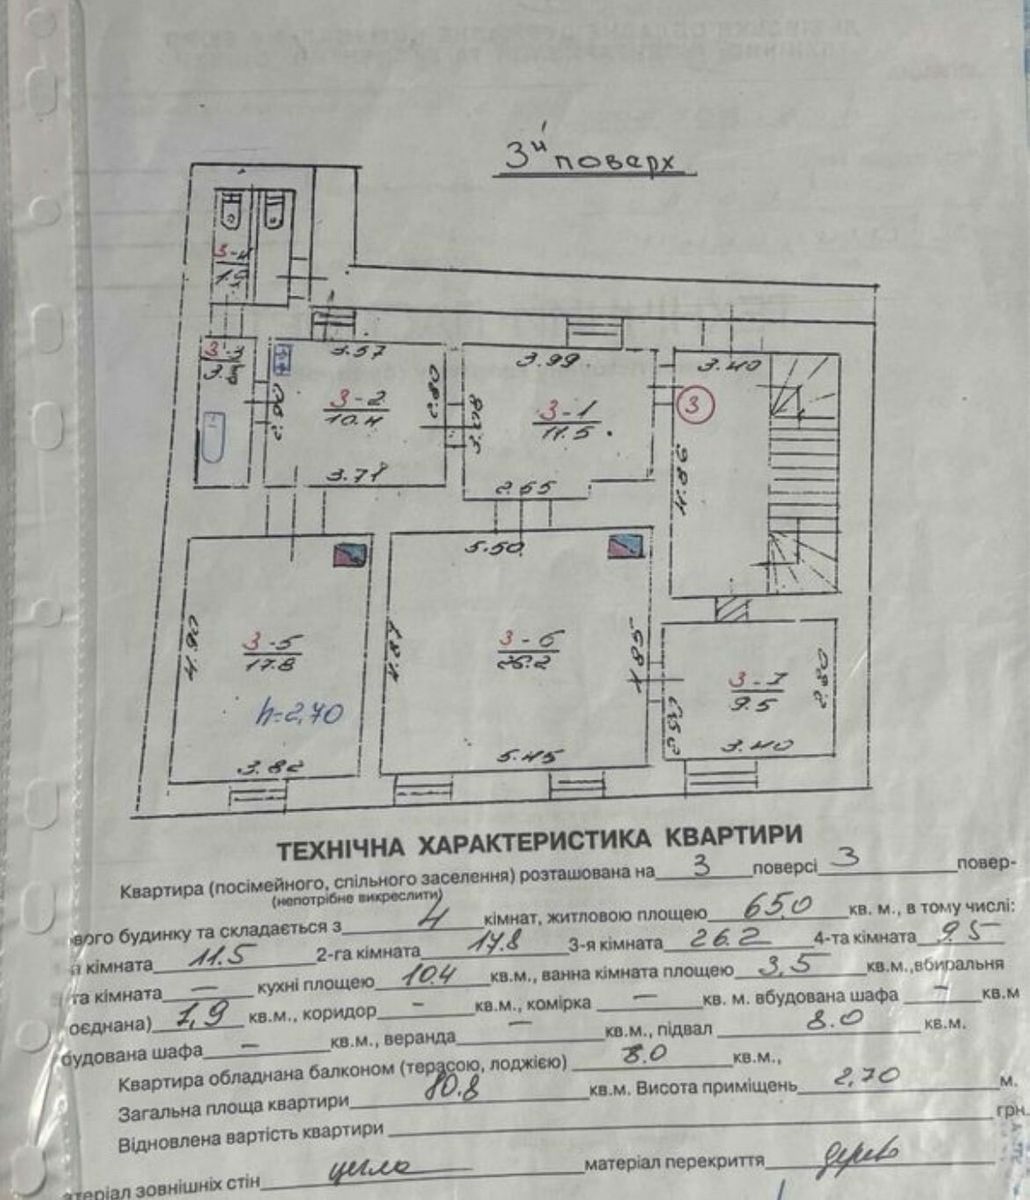 3й поверх
3-4
3-3
3.57
3.99
3.40
3-2
10.4
2.90
2.80
3.08
3-1
11.5
3
4.86
3.71
2.55
5.50
4.90
3-5
17.8
h=2,70
3.82
4.87
3-6
26.2
4.85
5.45
3-7
9.5
2.80
2.50
3.40
ТЕХНІЧНА ХАРАКТЕРИСТИКА КВАРТИРИ
Квартира (посімейного, спільного заселення) розташована на 3 поверсі 3 повер-
(непотрібне викреслити)
вого будинку та складається з 4 кімнат, житловою площею 65.0 кв. м., в том числі:
а кімната 11.5 2-га кімната 17.8 3-я кімната 26.2 4-та кімната 9.5
та кімната — кухні площею 10.4 кв.м., ванна кімната площею 3,5 кв.м.,вбиральня
оєднана) 1,9 кв.м., коридор – кв.м., комірка — кв. м. вбудована шафа – кв.м
будована шафа – кв.м., веранда — кв.м., підвал 8.0 кв.м.
Квартира обладнана балконом (терасою, лоджією) 8.0 кв.м.,
Загальна площа квартири 80.8 кв.м. Висота приміщень 2,70 м.
Відновлена вартість квартири грн.
атеріал зовнішніх стін цегла матеріал перекриття дерево